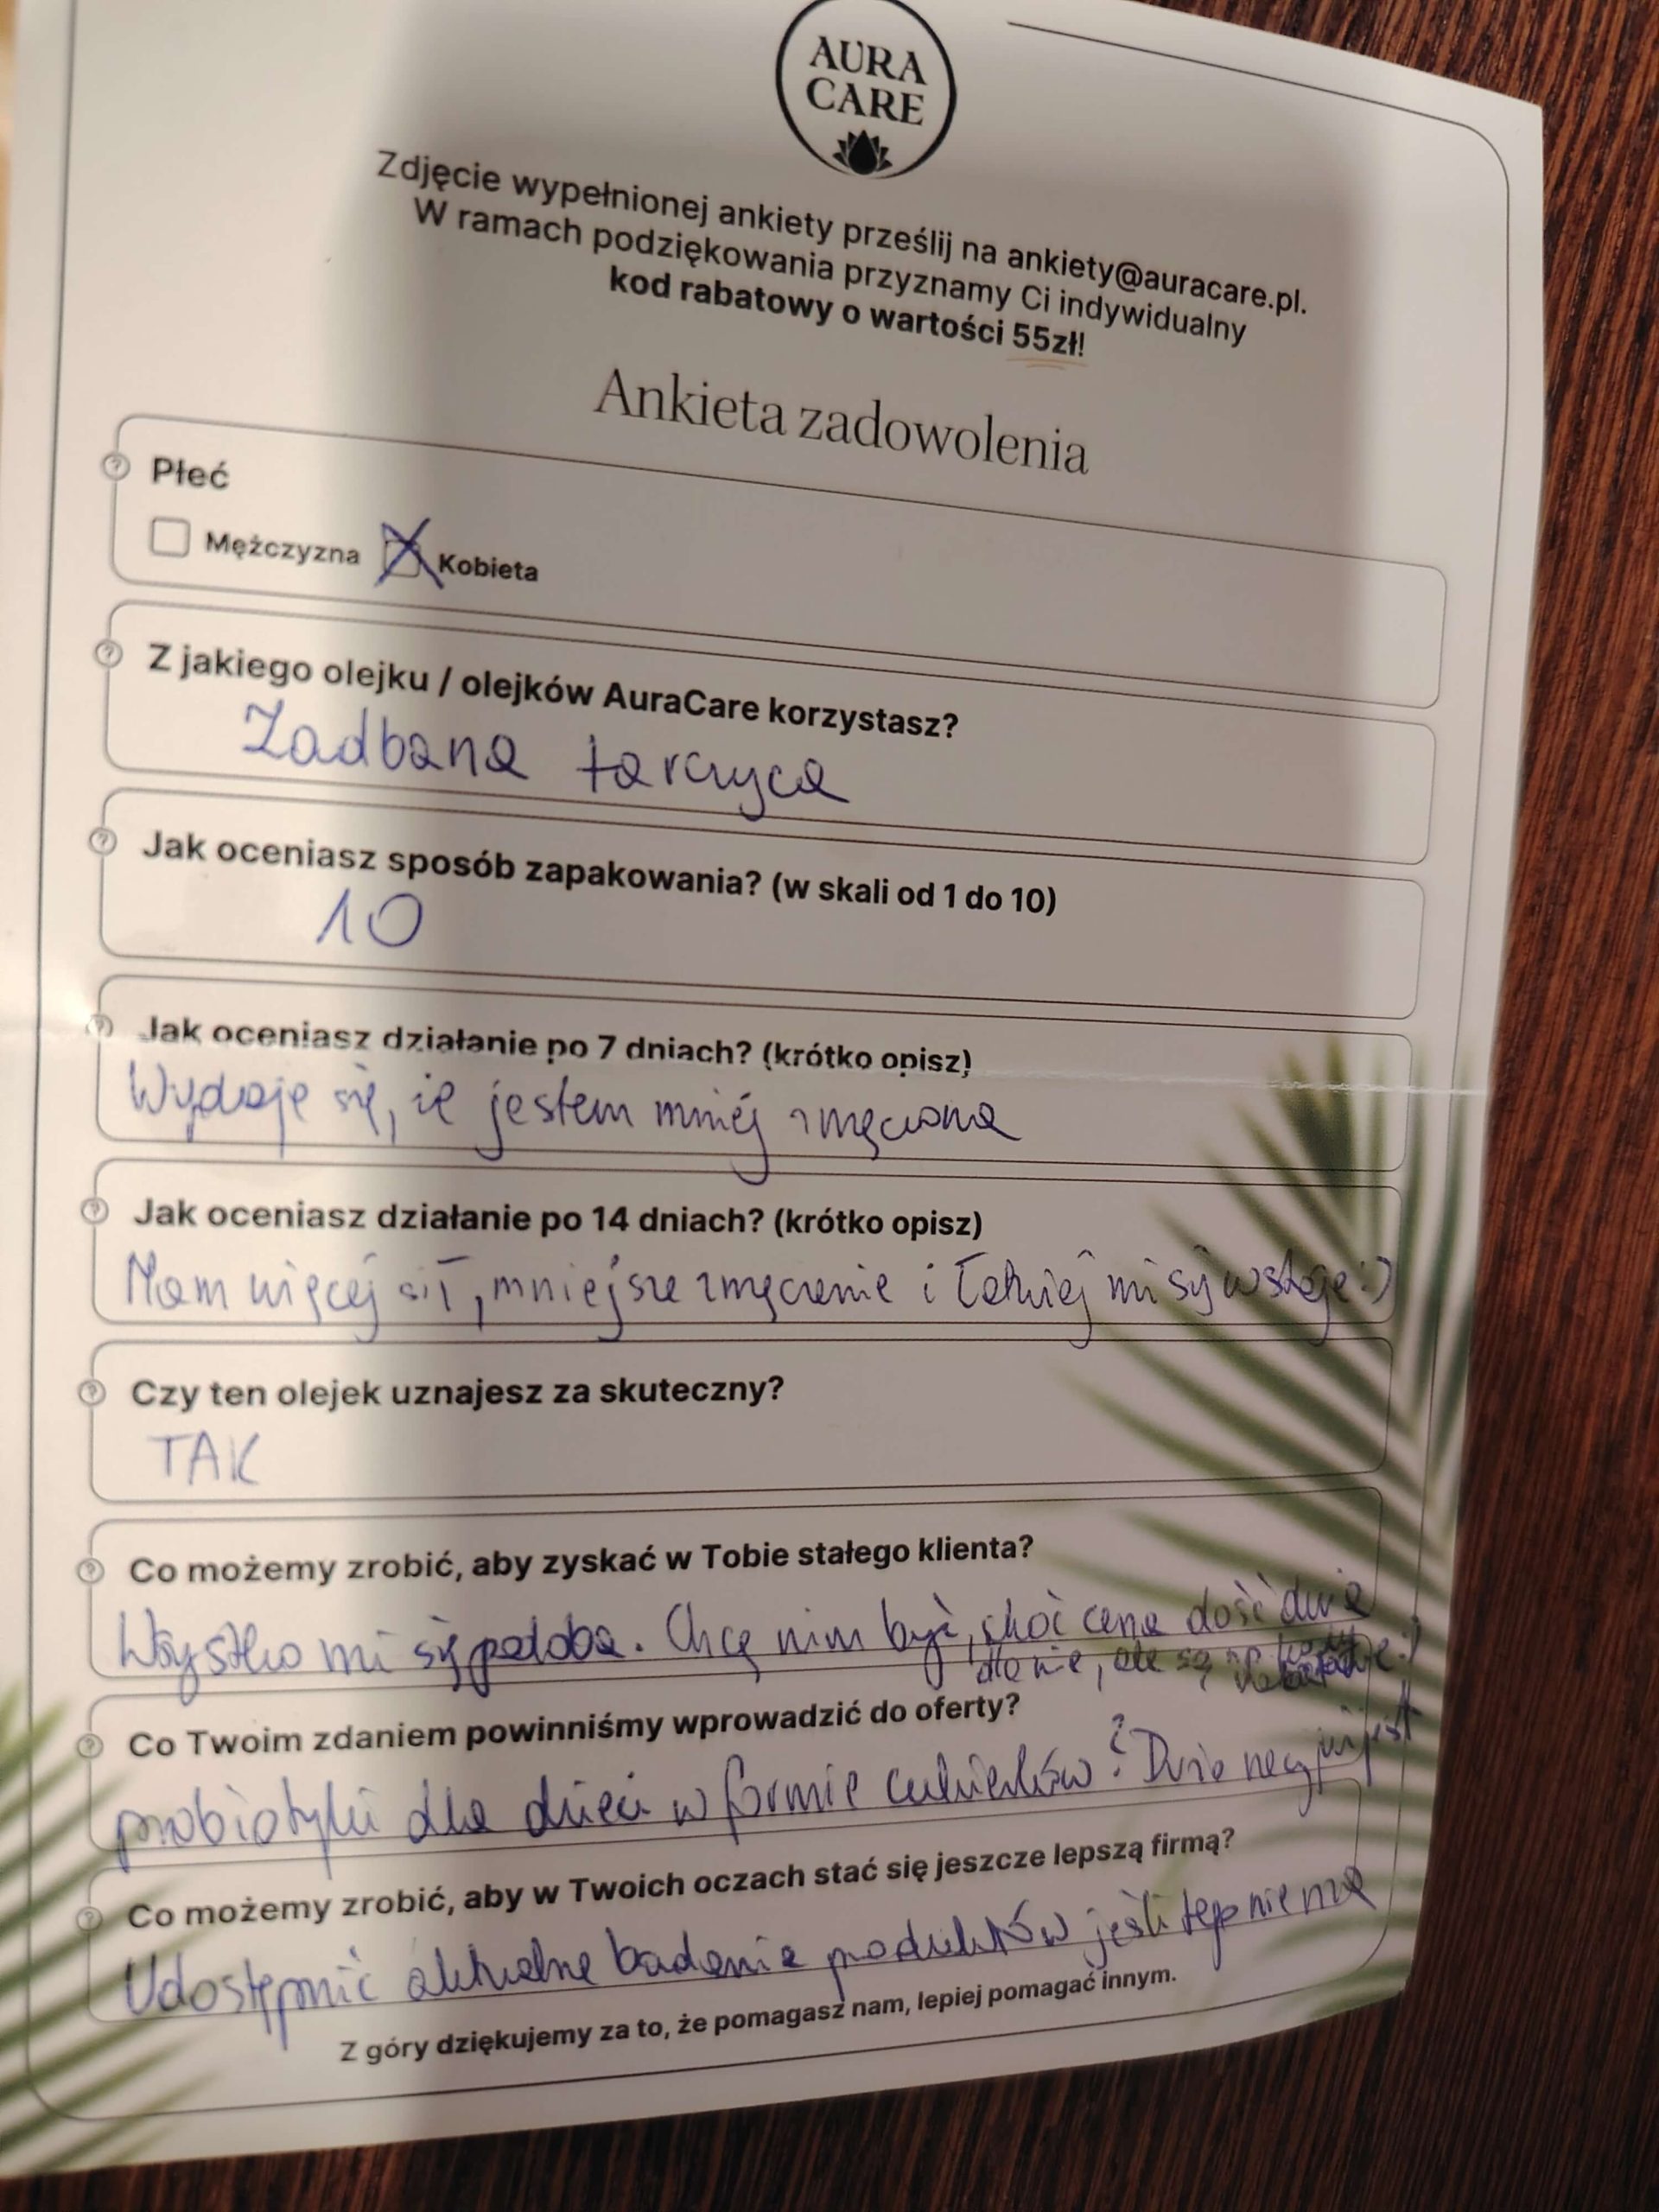 AURA
CARE
Zdjęcie wypełnionej ankiety prześlij na ankiety@auracare.pl.
W ramach podziękowania przyznamy Ci indywidualny
kod rabatowy o wartości 55zł!
Ankieta zadowolenia
Płeć
Mężczyzna Kobieta
Z jakiego olejku / olejków AuraCare korzystasz?
Zadbana tarczyca
Jak oceniasz sposób zapakowania? (w skali od 1 do 10)
10
Jak oceniasz działanie po 7 dniach? (krótko opisz)
Wydaje się, że jestem mniej zmęczona
Jak oceniasz działanie po 14 dniach? (krótko opisz)
Mam więcej sił, mniejsze zmęczenie i łatwiej mi się wstaje :)
Czy ten olejek uznajesz za skuteczny?
TAK
Co możemy zrobić, aby zyskać w Tobie stałego klienta?
Wszystko mi się podoba. Chcę nim być, choć cena dość duża
dla mnie, ale są
Co Twoim zdaniem powinniśmy wprowadzić do oferty?
probiotyki dla dzieci w formie cukierków? Dużo rzeczy już jest
Co możemy zrobić, aby w Twoich oczach stać się jeszcze lepszą firmą?
Udostępnić aktualne badania produktów jeśli tego nie ma
Z góry dziękujemy za to, że pomagasz nam, lepiej pomagać innym.